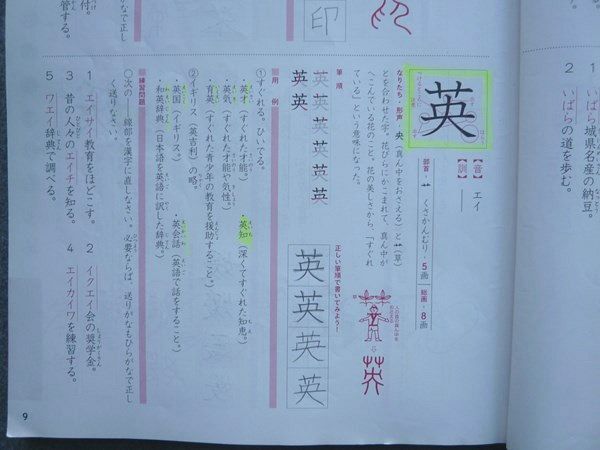 2 いばらの道を歩む。
1 いばら城県名産の納豆。
英
【音】 エイ
【訓】 ――
部首・艹 くさかんむり・5画 総画・8画
なりたち 形声 央（真ん中をおさえる）と艹（草）
とを合わせた字。花びらにかこまれて、真ん中が
へこんでいる花のこと。花の美しさから、「すぐれ
ている」という意味になった。
人の首の真ん中を
筆順
英英英英英英英英
正しい筆順で書いてみよう！
英英英英
用例
①すぐれる。ひいでる。
・英才（すぐれた才能。）
・英知（深くてすぐれた知恵。）
・英気（すぐれた才能や気性。）
・育英（すぐれた青少年の教育を援助すること。）
②イギリス（英吉利）の略。
・英国（イギリス。）
・英会話（英語で話をすること。）
・和英辞典（日本語を英語に訳した辞典。）
練習問題
○次の――線部を漢字に直しなさい。必要ならば、送りがなもひらがなで正し
く送りなさい。
1 エイサイ教育をほどこす。
2 イクエイ会の奨学金。
3 昔の人々のエイチを知る。
4 エイカイワを練習する。
5 ワエイ辞典で調べる。
付。
管する。
印
9